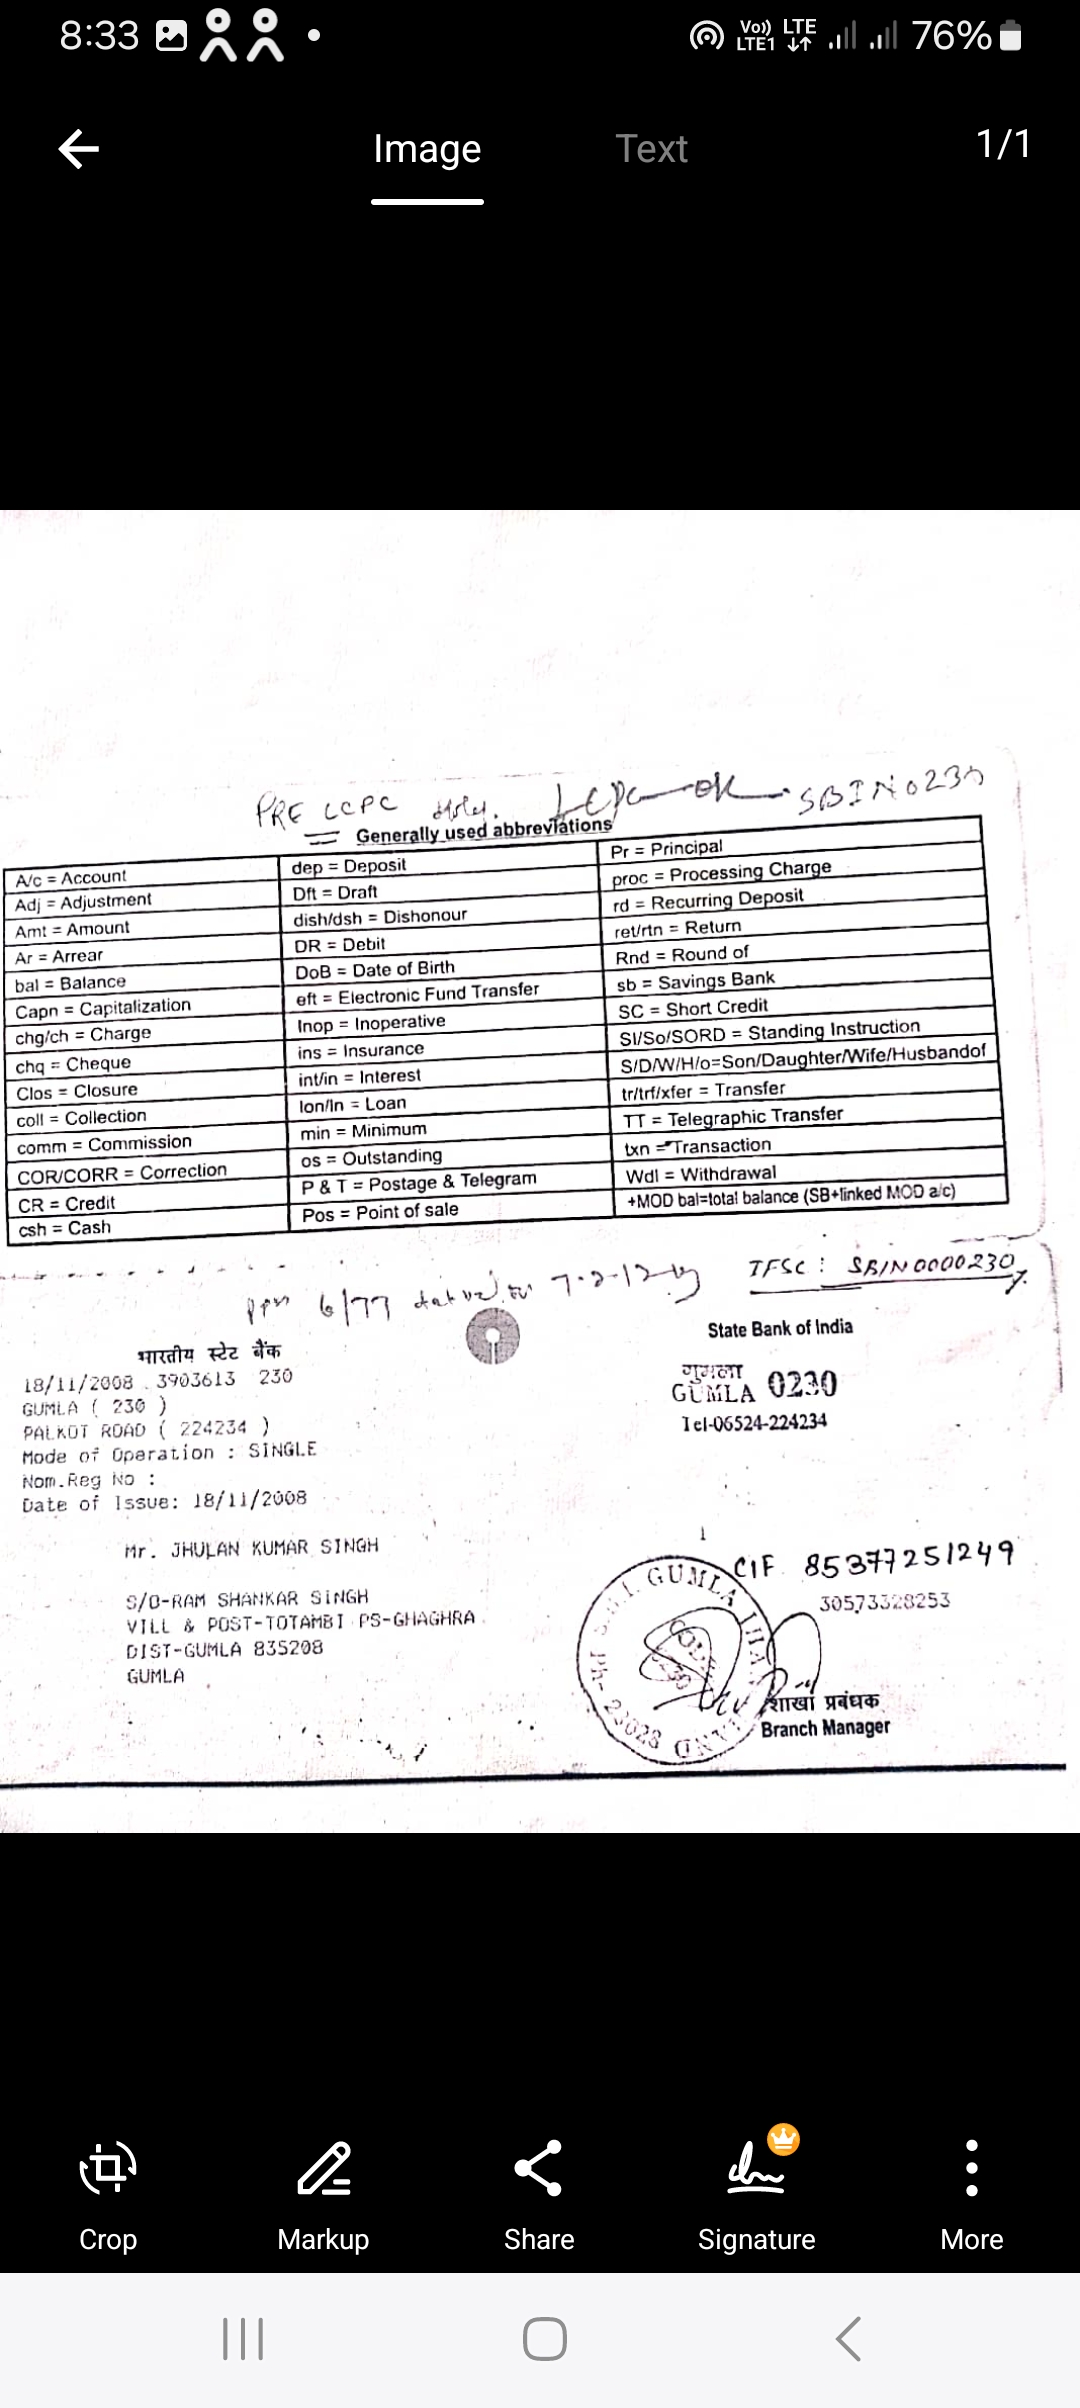 8:33
Vo)) LTE
LTE1
76%
Image Text 1/1
PRE LCPC
SBIN0230
Generally used abbreviations
A/c = Account
Adj = Adjustment
Amt = Amount
Ar = Arrear
bal = Balance
Capn = Capitalization
chg/ch = Charge
chq = Cheque
Clos = Closure
coll = Collection
comm = Commission
COR/CORR = Correction
CR = Credit
csh = Cash
dep = Deposit
Dft = Draft
dish/dsh = Dishonour
DR = Debit
DoB = Date of Birth
eft = Electronic Fund Transfer
Inop = Inoperative
ins = Insurance
int/in = Interest
lon/ln = Loan
min = Minimum
os = Outstanding
P & T = Postage & Telegram
Pos = Point of sale
Pr = Principal
proc = Processing Charge
rd = Recurring Deposit
ret/rtn = Return
Rnd = Round of
sb = Savings Bank
SC = Short Credit
SI/So/SORD = Standing Instruction
S/D/W/H/o=Son/Daughter/Wife/Husbandof
tr/trf/xfer = Transfer
TT = Telegraphic Transfer
txn = Transaction
Wdl = Withdrawal
+MOD bal=total balance (SB+linked MOD a/c)
6/77
IFSC : SBIN0000230
भारतीय स्टेट बैंक
18/11/2008 3903613 230
GUMLA ( 230 )
PALKOT ROAD ( 224234 )
Mode of Operation : SINGLE
Nom.Reg No :
Date of Issue: 18/11/2008
State Bank of India
गुमला
GUMLA 0230
Tel-06524-224234
Mr. JHULAN KUMAR SINGH
S/O-RAM SHANKAR SINGH
VILL & POST-TOTAMBI PS-GHAGHRA
DIST-GUMLA 835208
GUMLA
CIF 85377251249
30573328253
S.B.I. GUMLA
शाखा प्रबंधक
Branch Manager
Crop Markup Share Signature More